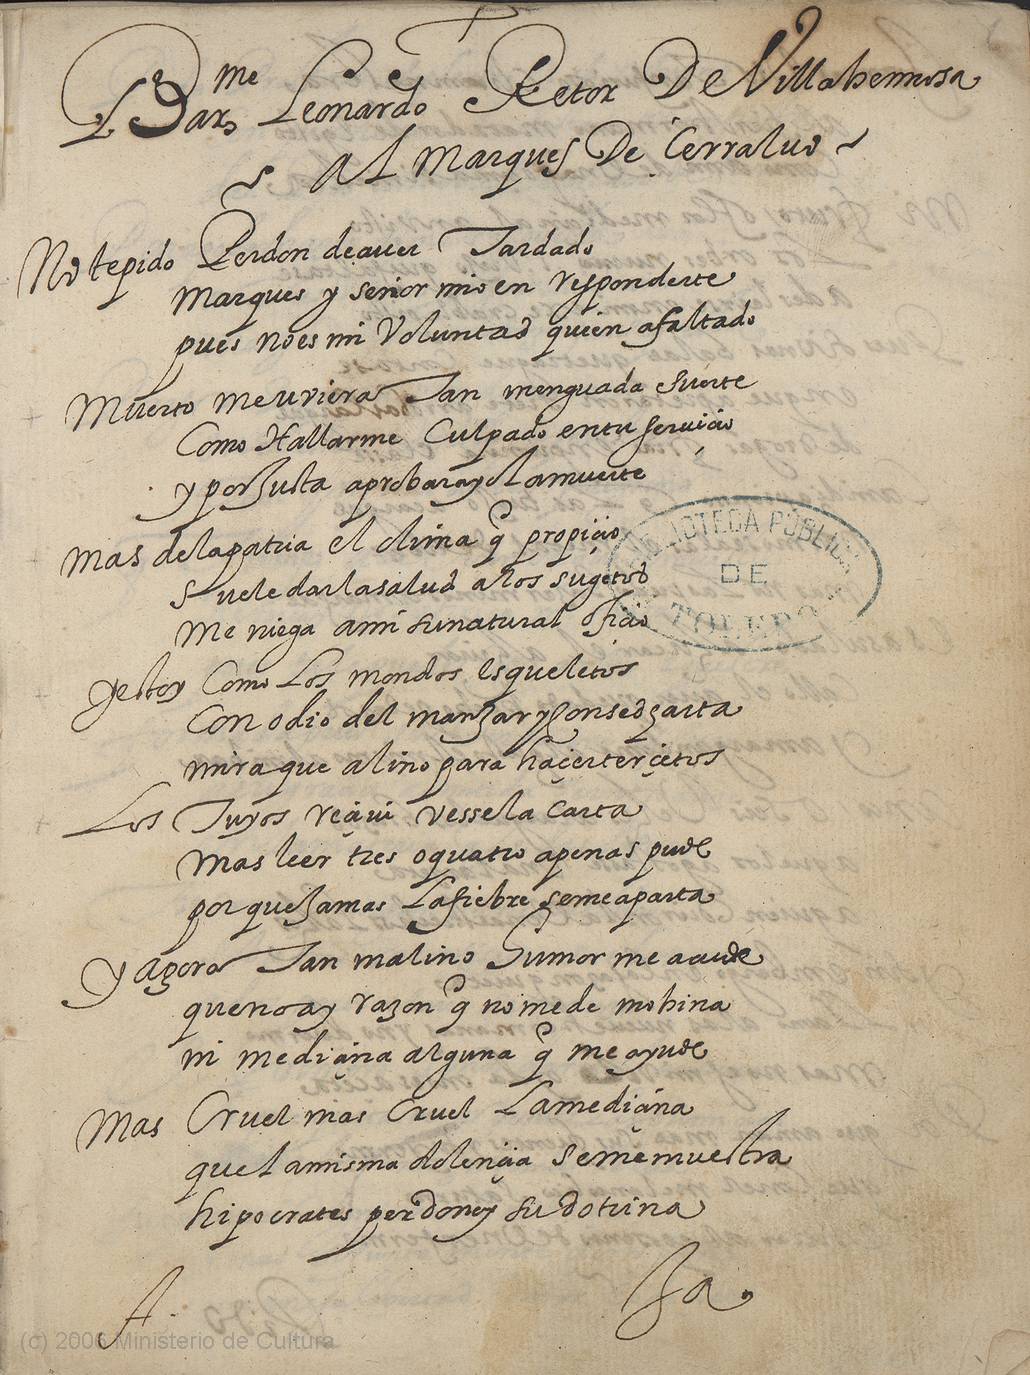 El Bar.me Leonardo Retor De Villahermosa
al Marques De Cerralvo
No te pido Perdon de aver Tardado
Marques y señor mio en responderte
pues no es mi Voluntad quien a faltado
Muerto me uviera Tan menguada suerte
Como Hallarme Culpado en tu serviçio
y por Justa aprobara yo la muerte
Mas de la patria el clima q propiçio
suele dar la salud a los sugetos
Me niega a mi su natural ofiçio
y estoy Como Los mondos esqueletos
Con odio del manjar y Con sed harta
mira que alino para haçer terçetos
Los Tuyos reçiui vesse la carta
Mas leer tres o quatro apenas pude
por que Jamas La fiebre se me aparta
y agora Tan malino Humor me acude
que no ay razon q no me de mohina
ni mediçina alguna q me ayude
Mas Cruel mas Cruel La mediçina
que la misma dolençia se me muestra
hipocrates perdone y su dotrina
Ja.
A
BIBLIOTECA PÚBLICA
DE
TOLEDO
(c) 2006 Ministerio de Cultura